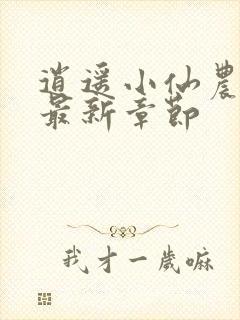 逍遥小仙農
最新章節
我才一歲嘛